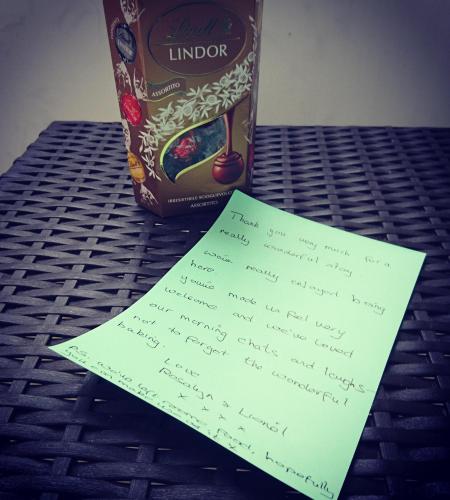 Lindt
LINDOR
ASSORTITO
IRRESISTIBILE SCIOGLIEVOLEZZA
ASSORTITO
Thank you very much for a
really wonderful stay
We've really enjoyed being
here
you've made us feel very
welcome and we've loved
our morning chats and laughs -
not to forget the wonderful
baking.
Love
Rosalyn & Lionel
x x x x
P.S. we've left some food, hopefully
you can